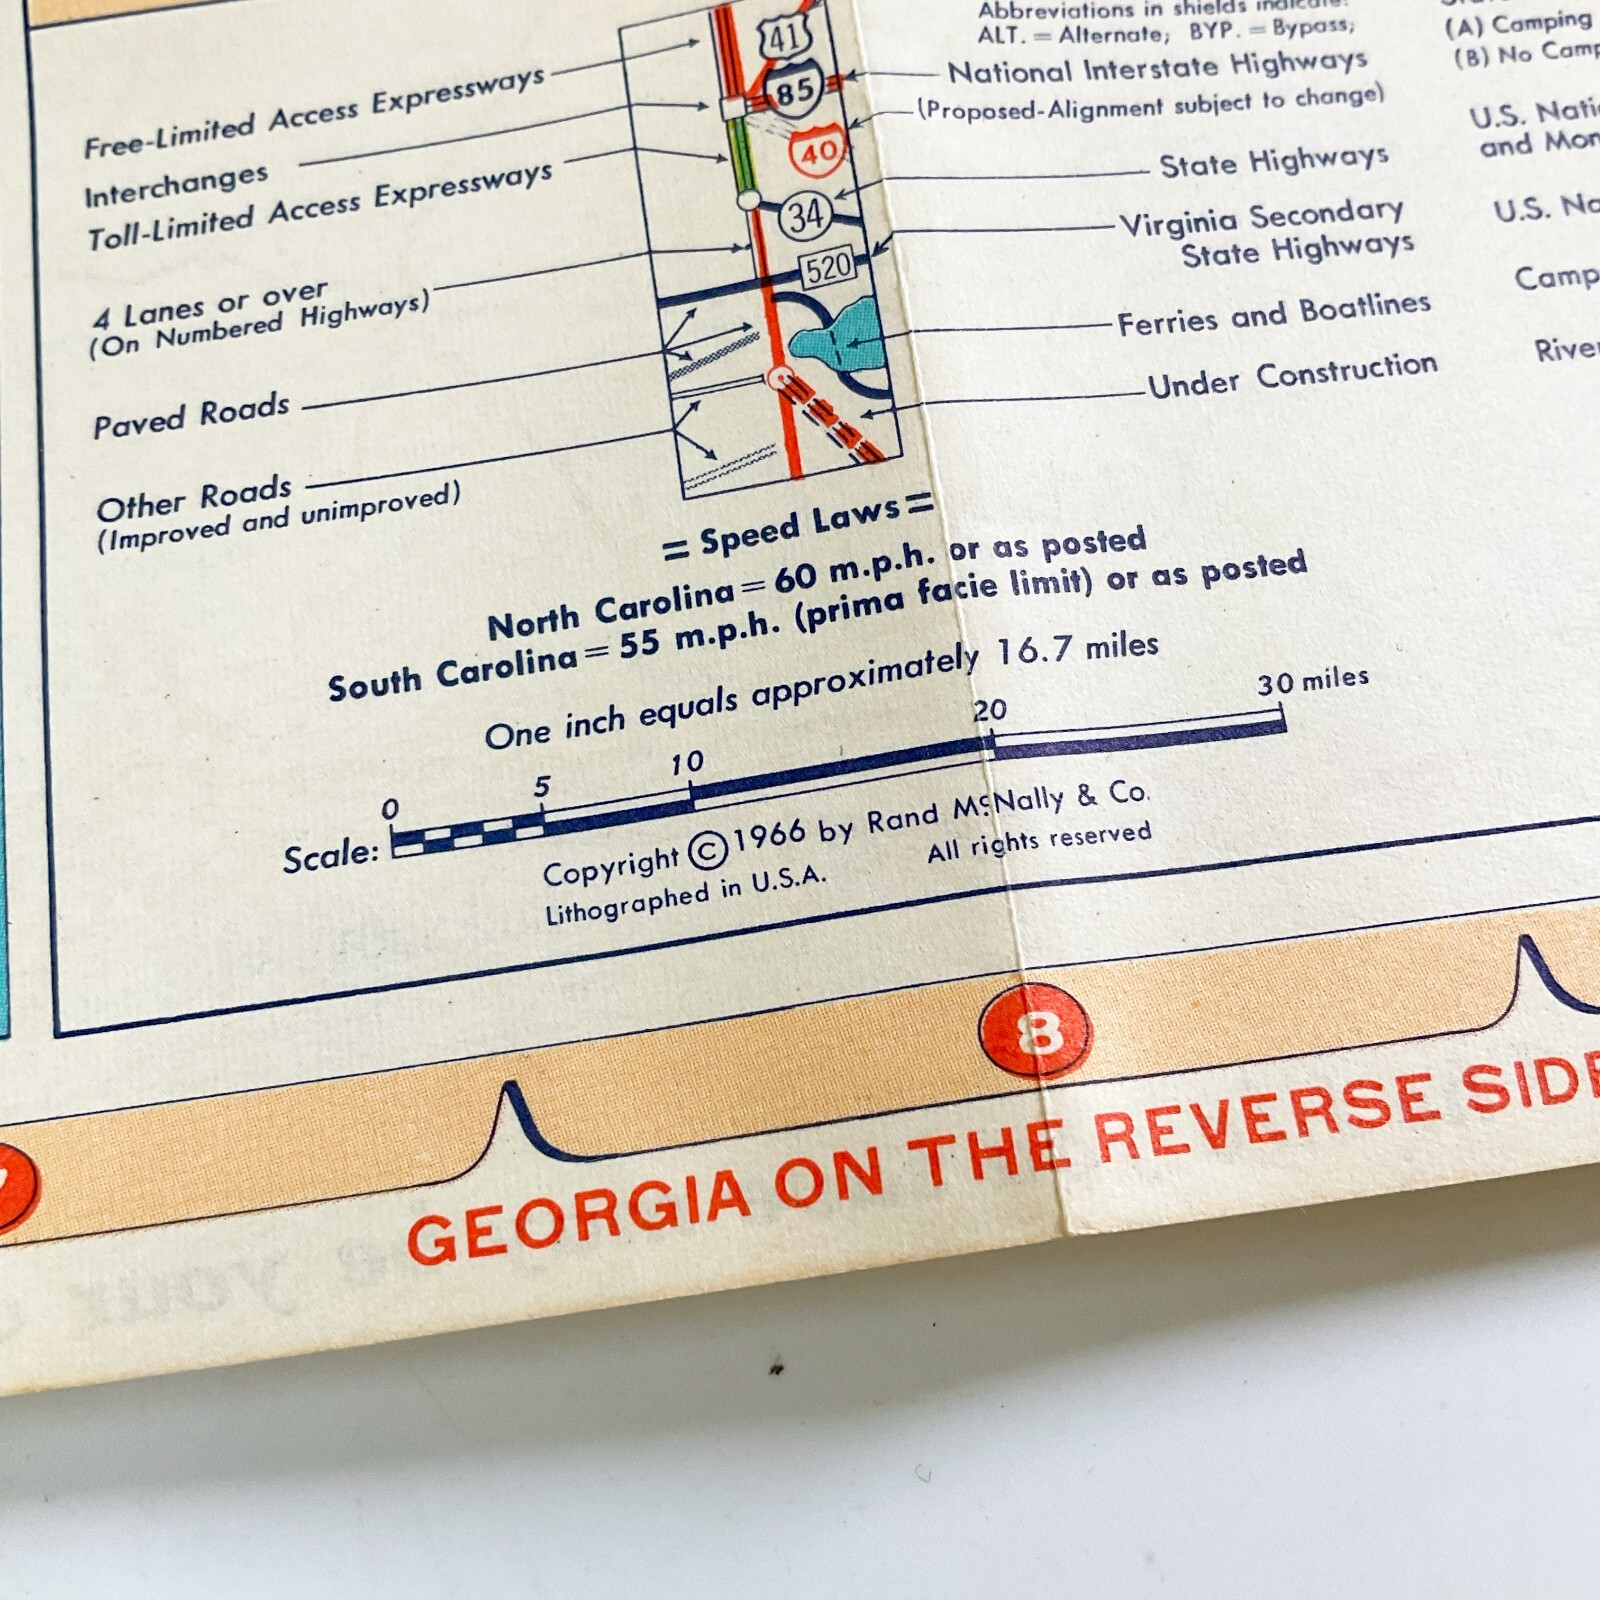 Free-Limited Access Expressways
Interchanges
Toll-Limited Access Expressways
4 Lanes or over
(On Numbered Highways)
Paved Roads
Other Roads
(Improved and unimproved)
41
85
40
34
520
Abbreviations in shields indicate:
ALT. = Alternate; BYP. = Bypass;
National Interstate Highways
(Proposed-Alignment subject to change)
State Highways
Virginia Secondary
State Highways
Ferries and Boatlines
Under Construction
(A) Camping
(B) No Camp
U.S. Nati
and Mon
U.S. Na
Camp
River
= Speed Laws =
North Carolina = 60 m.p.h. or as posted
South Carolina = 55 m.p.h. (prima facie limit) or as posted
One inch equals approximately 16.7 miles
0 5 10 20 30 miles
Scale:
Copyright © 1966 by Rand McNally & Co.
Lithographed in U.S.A. All rights reserved
8
GEORGIA ON THE REVERSE SIDE